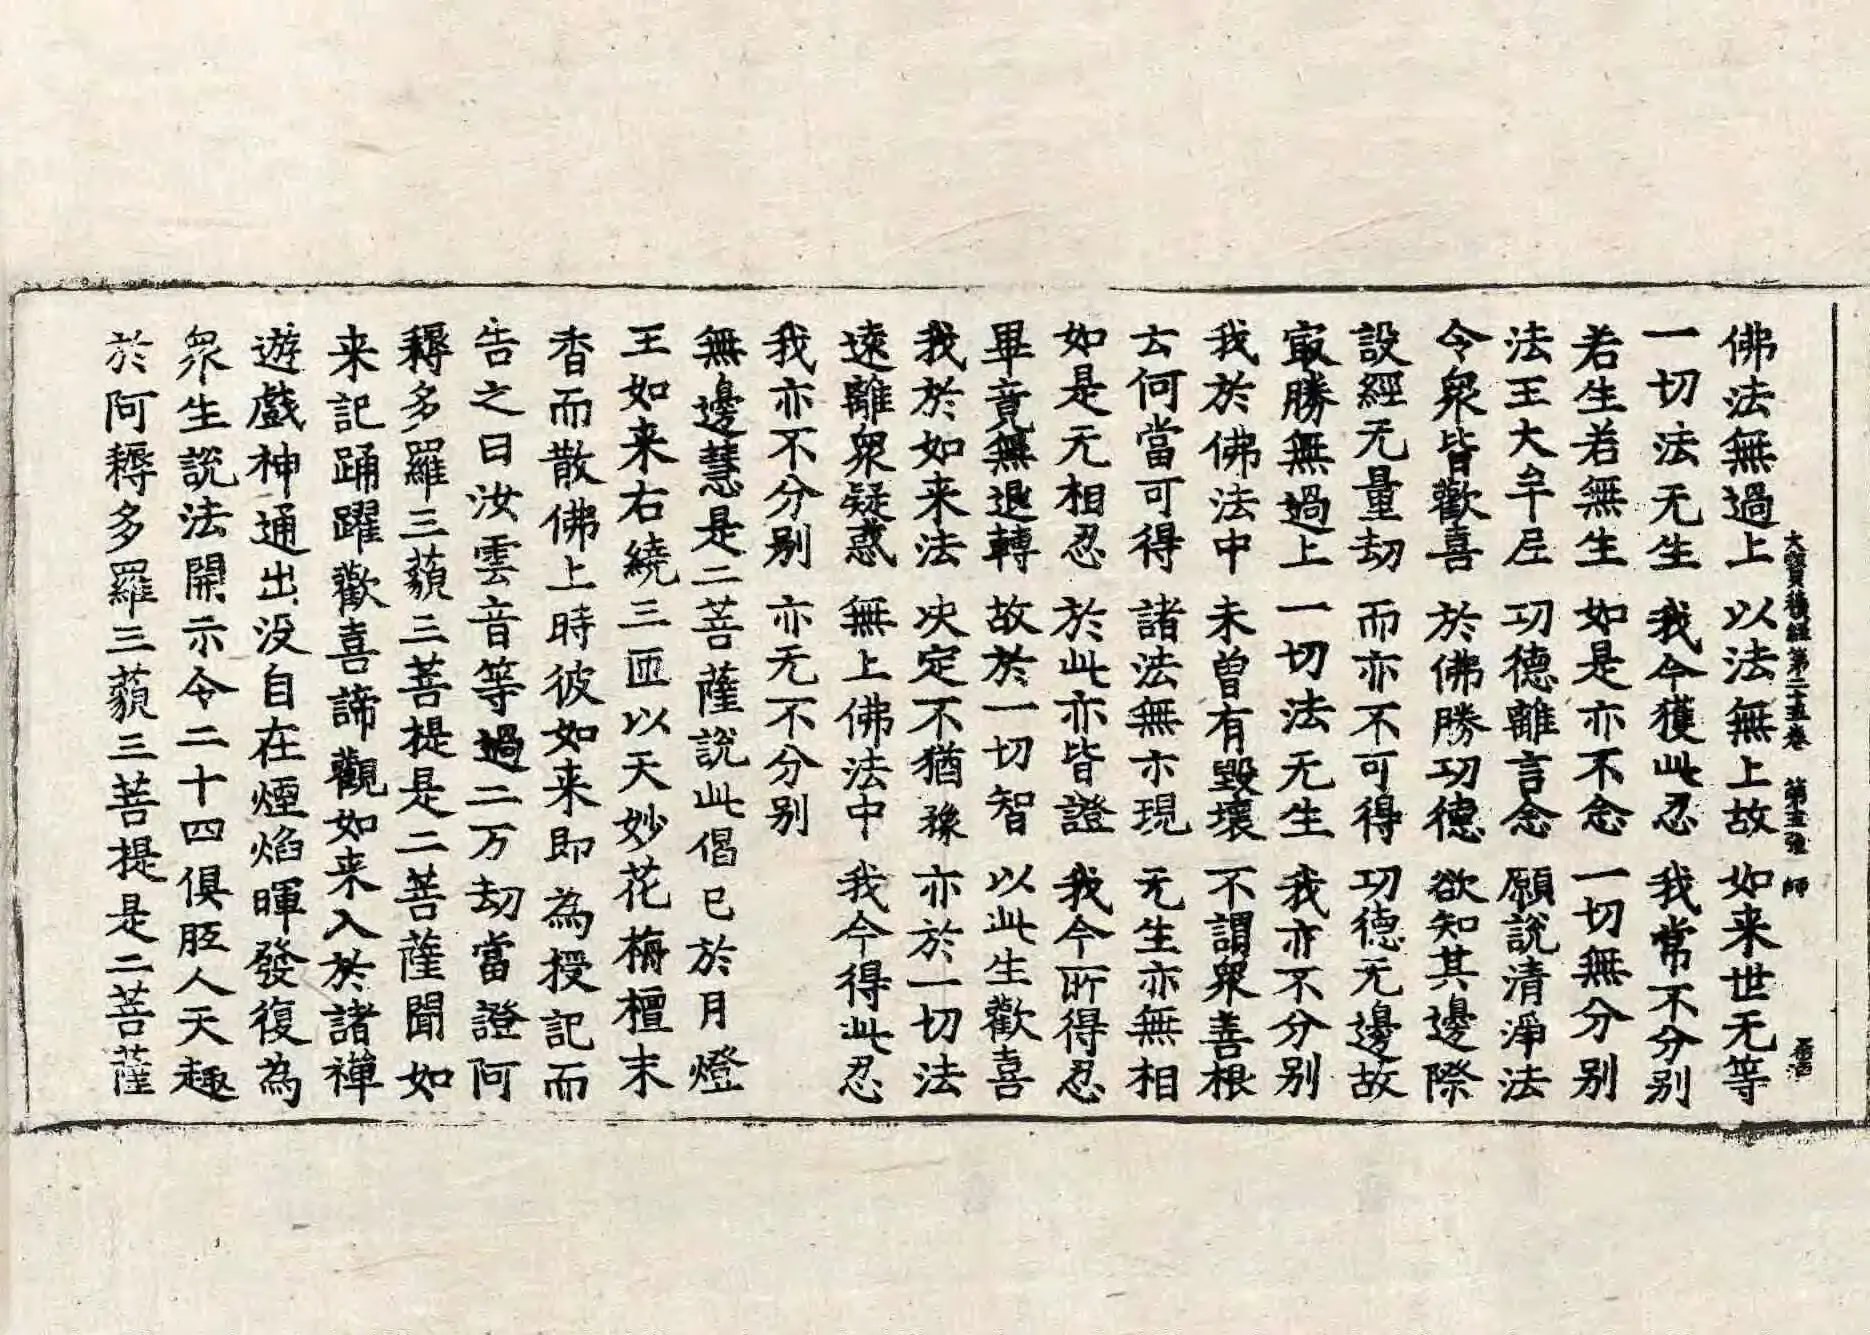 大寶積經第二十五卷　第五張　師
佛法無過上　以法無上故　如来世无等
一切法无生　我今獲此忍　我常不分别
若生若無生　如是亦不念　一切無分别
法王大牟尼　功德離言念　願說清淨法
令衆皆歡喜　於佛勝功德　欲知其邊際
設經无量劫　而亦不可得　功德无邊故
㝡勝無過上　一切法无生　我亦不分别
我於佛法中　未曽有毀壞　不謂衆善根
云何當可得　諸法無亦現　无生亦無相
如是无相忍　於此亦皆證　我今所得忍
畢竟無退轉　故於一切智　以此生歡喜
我於如来法　决定不猶豫　亦於一切法
遠離衆疑惑　無上佛法中　我今得此忍
我亦不分别　亦无不分别
無邊慧是二菩薩說此偈已於月燈
王如来右繞三匝以天妙花栴檀末
香而散佛上時彼如来即為授記而
告之曰汝雲音等過二万劫當證阿
耨多羅三藐三菩提是二菩薩聞如
来記踊躍歡喜諦觀如来入於諸禪
遊戲神通出没自在煙焰暉發復為
衆生說法開示令二十四俱胝人天趣
於阿耨多羅三藐三菩提是二菩薩